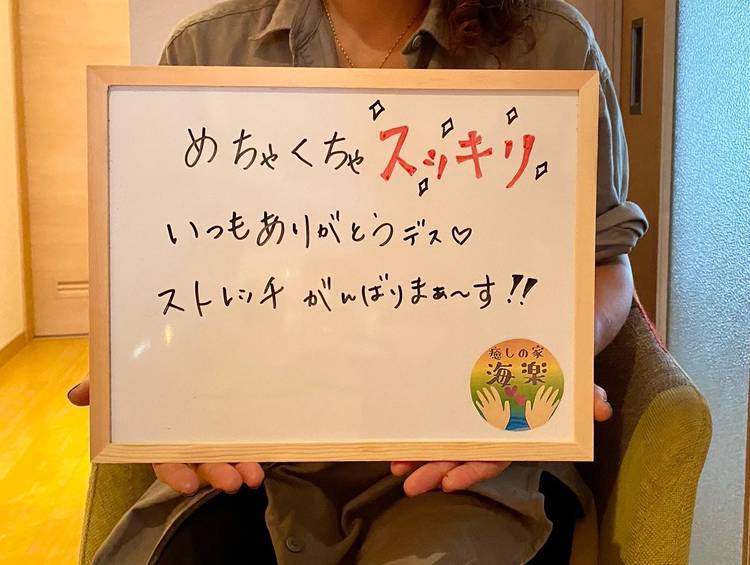 めちゃくちゃスッキリ
いつもありがとうデス♡
ストレッチ がんばりまぁ〜す!!
癒しの家
海楽